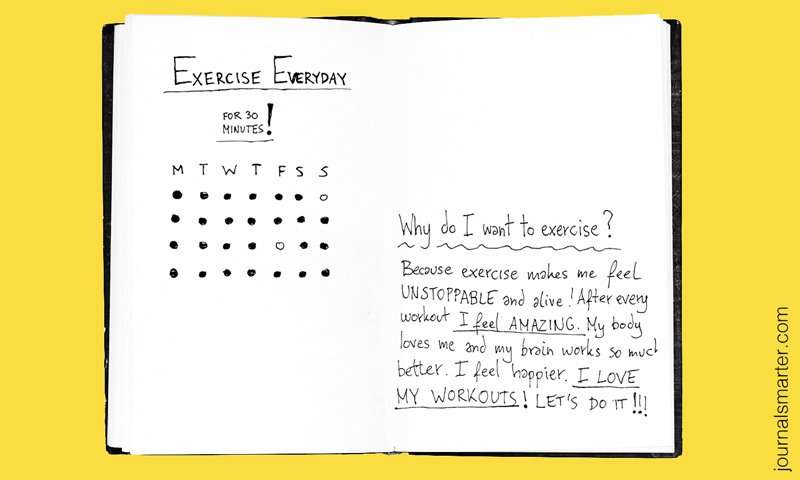 EXERCISE EVERYDAY
FOR 30
MINUTES!
M T W T F S S
Why do I want to exercise?
Because exercise makes me feel
UNSTOPPABLE and alive! After every
workout I feel AMAZING. My body
loves me and my brain works so much
better. I feel happier. I LOVE
MY WORKOUTS! LET'S DO IT!!!
journalsmarter.com